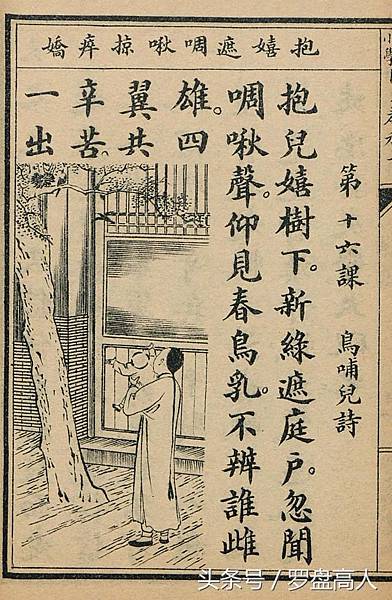 抱嬉遮啁啾掠瘁嬌
第十六課 鳥哺兒詩
抱兒嬉樹下。新綠遮庭戶。忽聞
啁啾聲。仰見春鳥乳。不辨誰雌
雄。四
翼共
辛苦。
一出
头条号 / 罗盘高人